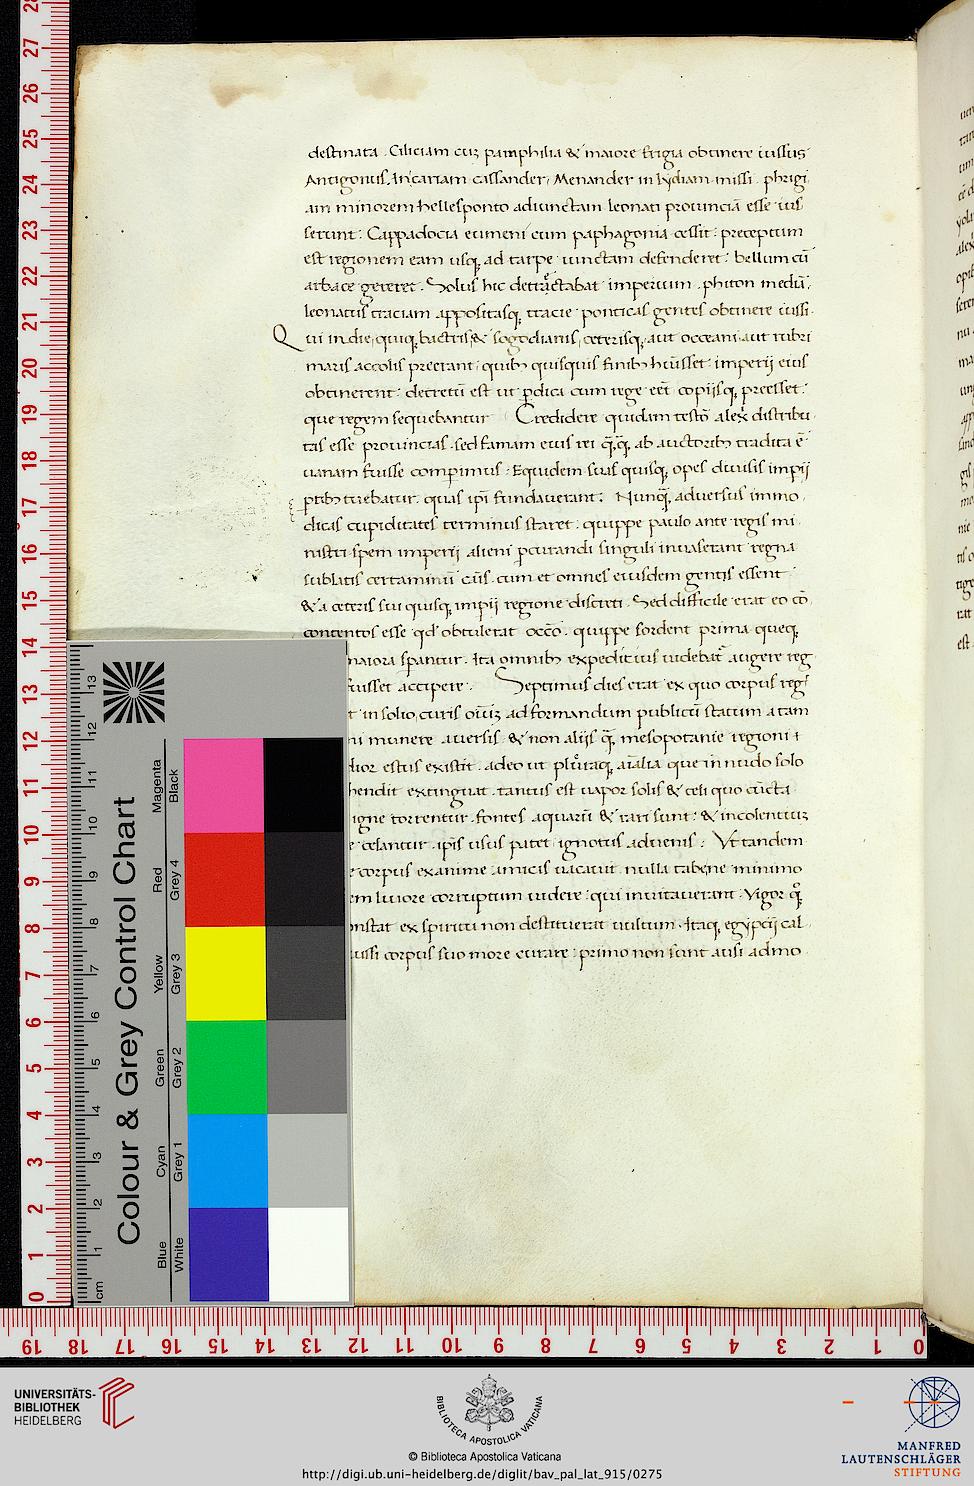 destinata . Ciliciam cuz pamphilia & maiore frigia obtinere iussus
Antigonus. In cariam cassander, Menander in lydiam missi . phrigi
am minorem hellesponto adiunctam leonati prouinciā esse ius
serunt : Cappadocia eumeni cum paphagonia cessit : preceptum
est regionem eam usq; ad tarpe iunctam defenderet : bellum cū
arbace gereret . Solus hic detractabat imperium . phiton mediā,
leonatus traciam appositasq; tracie ponticas gentes obtinere iussi .
Qui indie, quiq; bactris & sogodianis, ceterisq; aut occeani aut rubri
maris accolis preerant, quibȝ quisquis finibȝ hūisset imperij eius
obtinerent : decretū est ut pdica cum rege eēt copijsq; preesset :
que regem sequebantur Credidere quidam testō alex̄ distribu
tas esse prouincias . sed famam eius rei q̄q̄ ab auctoribȝ tradita ē
uanam fuisse comperimus : Equidem suas quisq; opes diuisis impij
ptibȝ tuebatur . quas ipi fundauerant : Nunq̄ aduersus immo
dicas cupiditates terminus staret : quippe paulo ante regis mi
nistri spem imperij alieni pcurandi singuli inuaserant regna
sublatis certaminū cūs . cum et omnes eiusdem gentis essent
& a ceteris sui quisq; impij regione discreti . Sed difficile erat eo cō
contentos esse qd obtulerat occō . quippe sordent prima queq;
maiora spantur . Ita omnibȝ expeditius uidebat augere reg
fuisset accipere . Septimus dies erat ex quo corpus reg
t in solio, curis oīuz ad formandum publicū statum a tam
ni munere auersis & non alijs q̄ mesopotanie regioni
dior estus existit . adeo ut pleraq; aīalia que in nudo solo
hendit extinguat . tantus est uapor solis & celi quo cūcta
igne torrentur . fontes aquarū & rari sunt : & incolentiuz
e celantur . ipīs usus patet ignotus aduenis : Vt tandem
corpus exanime amicis uacauit nulla tabe ne minimo
em liuore corruptum uidere : qui intrauerant . Vigor q;
nstat ex spiritu non destituerat uultum . Itaq; egypcij cal
iussi corpus suo more curare : primo non sunt ausi admo
Colour & Grey Control Chart
Magenta
Black
Red
Grey 4
Yellow
Grey 3
Green
Grey 2
Cyan
Grey 1
Blue
White
cm
UNIVERSITÄTS-
BIBLIOTHEK
HEIDELBERG
BIBLIOTECA APOSTOLICA VATICANA
© Biblioteca Apostolica Vaticana
http://digi.ub.uni-heidelberg.de/diglit/bav_pal_lat_915/0275
MANFRED
LAUTENSCHLÄGER
STIFTUNG